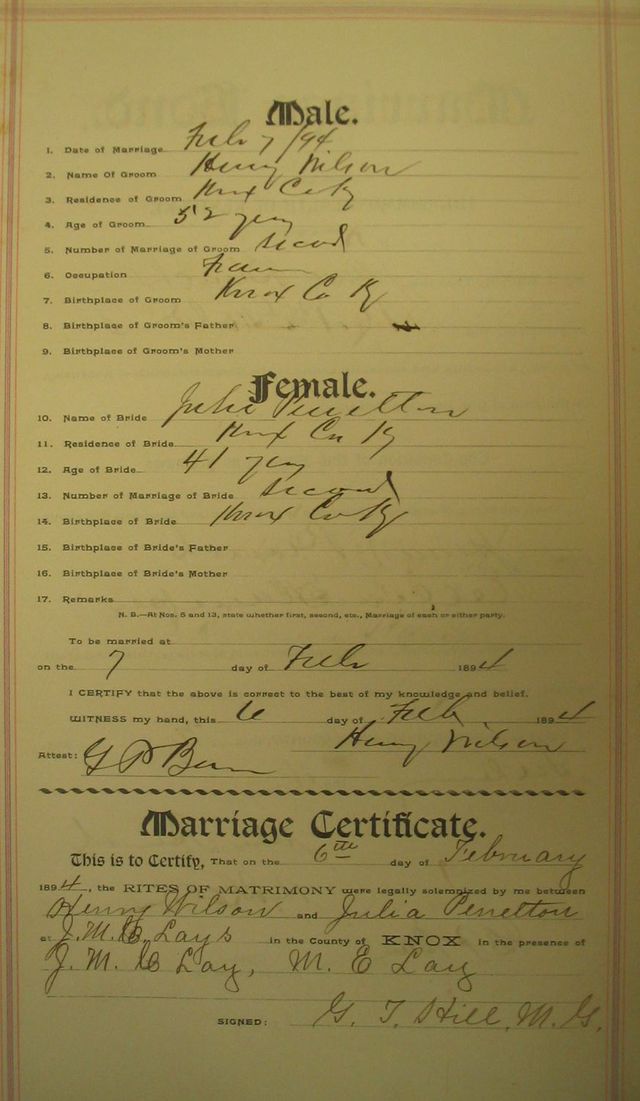 Male.
1. Date of Marriage Feb 7/94
2. Name Of Groom Henry Wilson
3. Residence of Groom Knox Co Ky
4. Age of Groom. 52 years
5. Number of Marriage of Groom second
6. Occupation
7. Birthplace of Groom Knox Co Ky
8. Birthplace of Groom's Father
9. Birthplace of Groom's Mother
Female.
10. Name of Bride Julia Penelton
11. Residence of Bride Knox Co Ky
12. Age of Bride 41 years
13. Number of Marriage of Bride second
14. Birthplace of Bride Knox Co Ky
15. Birthplace of Bride's Father
16. Birthplace of Bride's Mother
17. Remarks
N. B.—At Nos. 5 and 13, state whether first, second, etc., Marriage of each or either party.
To be married at
on the 7 day of Feb 1894
I CERTIFY that the above is correct to the best of my knowledge and belief.
WITNESS my hand, this 6 day of Feb. 1894
Henry Wilson
Attest: G P
Marriage Certificate.
This is to Certify, That on the 6th day of February
1894, the RITES OF MATRIMONY were legally solemnized by me between
Henry Wilson and Julia Penelton
at J. M. Lays in the County of KNOX in the presence of
J. M. Lay, M. E Lay
SIGNED: G. T. Hill, M. G.